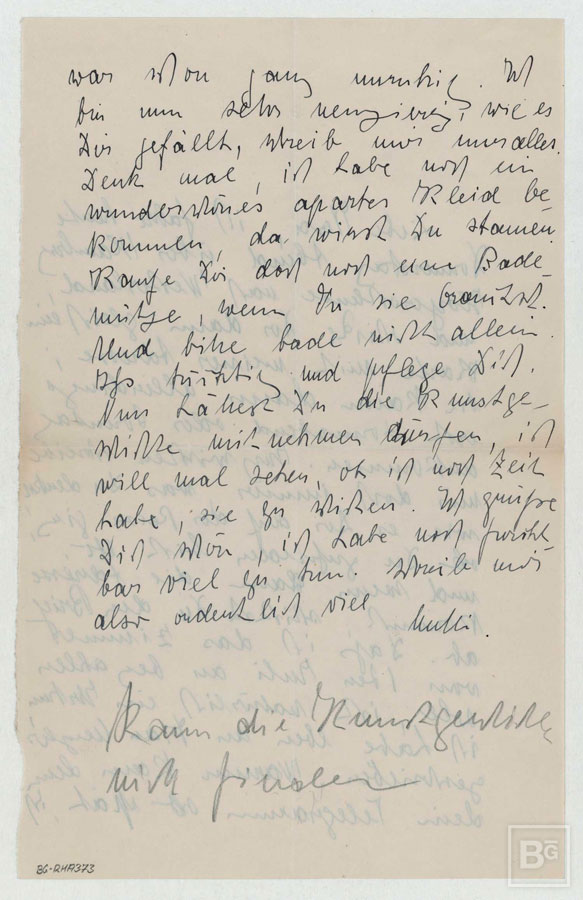 war schon ganz unruhig. Ich
bin nun sehr neugierig, wie es
Dir gefällt, schreib mir nur alles.
Denk mal, ich habe noch ein
wunderschönes apartes Kleid be-
kommen, da wirst Du staunen.
Kaufe Dir dort noch eine Bade-
mütze, wenn Du sie brauchst.
Und bitte bade nicht allein.
Iss tüchtig und pflege Dich.
Nun hättest Du die Kunstge-
schichte mitnehmen dürfen, ich
will mal sehen, ob ich noch Zeit
habe, sie zu schicken. Ich grüsse
Dich schön, ich habe noch furcht
bar viel zu tun. Schreib mir
also ordentlich viel Mutti.
Kann die Kunstgeschichte
nich finden
BG-RHA373
BG